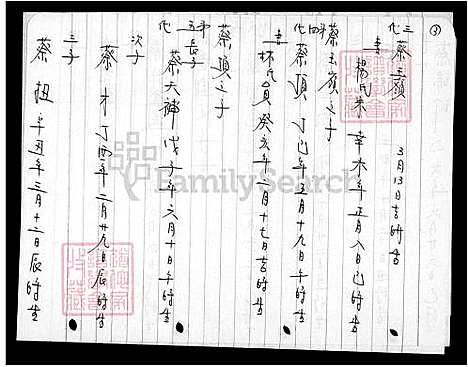 ③
三代 蔡玉嶺 3月13日吉時生
妻 楊氏朱 辛未年正月八日巳時生
蔡玉嶺之子
第四代 蔡頂 丁巳年五月十九日午時生
妻 林氏員 癸亥年二月十七吉時生
蔡頂之子
第五代 長子 蔡天補 戊子年六月十日午時生
次子
蔡才 丁酉年二月廿九日辰時生
三子
蔡扭 辛丑年三月十二日辰時生
FamilySearch